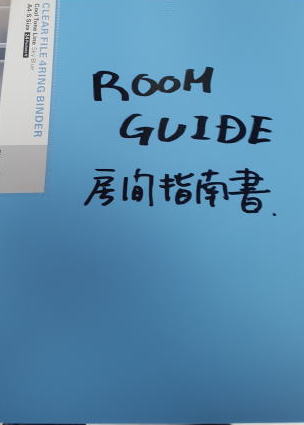 ROOM
GUIDE
房间指南書.
CLEAR FILE 4RING BINDER
Cool Tone Line Sky Blue
A4-S Size